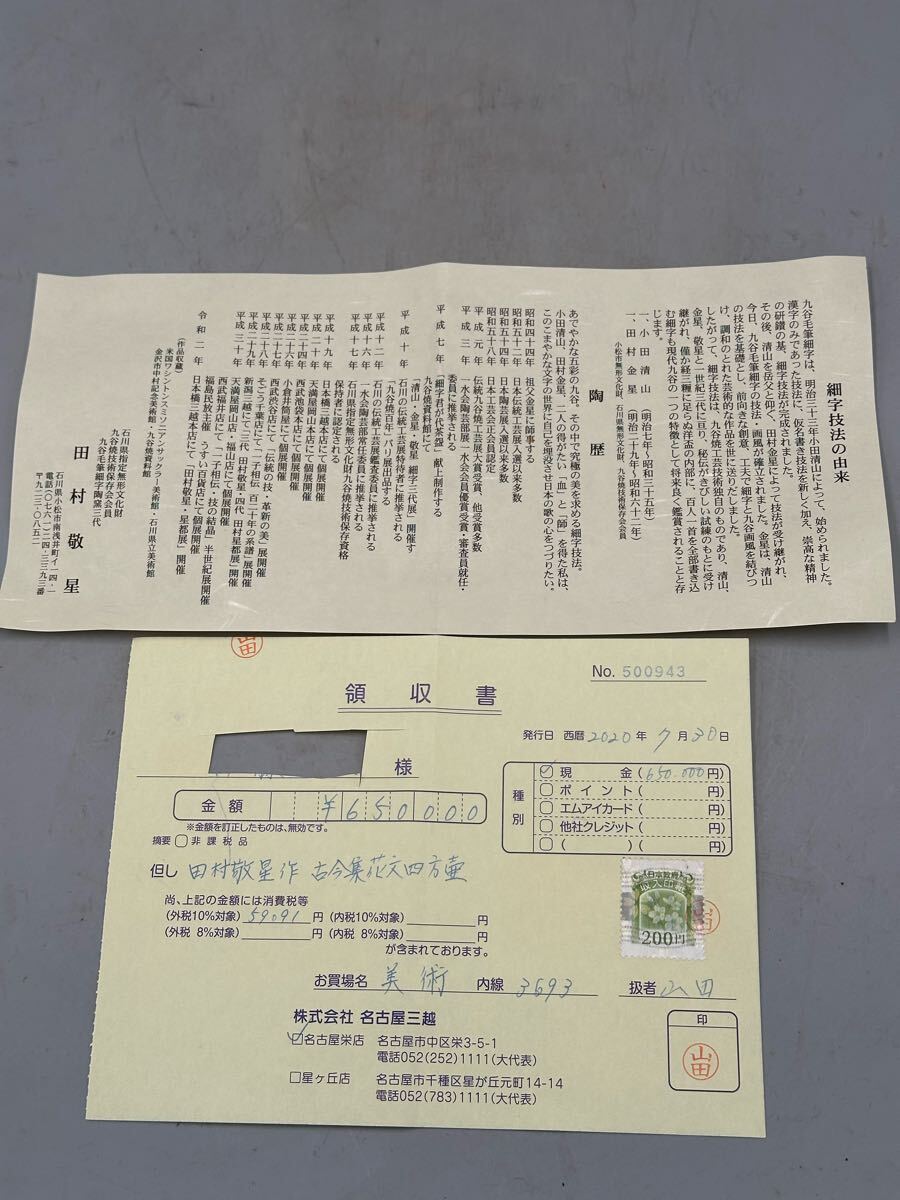 細字技法の由来
九谷毛筆細字は、明治三十三年小田清山によって、始められました。
漢字のみであった技法に、仮名書き技法を新しく加え、崇高な精神
の研鑽の基、細字技法が完成されました。
その後、清山を岳父と仰ぐ、田村金星によって技法が受け継がれ、
今日、九谷毛筆細字の技法・画風が確立されました。金星は、清山
の技法を基礎とし、前向きな創意、工夫で細字と九谷画風を結びつ
け、調和のとれた芸術的な作品を世に送りだしました。
したがって、細字技法は、九谷焼工芸技術独自のものであり、清山、
金星、敬星と一世紀三代に亘り、秘伝がきびしい試練のもとに受け
継がれ、僅か経三糎に足らぬ洋盃の内部に、百人一首を全部書き込
む細字も現代九谷の一つの特徴として将来良く鑑賞されることと存
じます。
一、小田清山 (明治七年〜昭和三十五年)
一、田村金星 (明治二十九年〜昭和六十二年)
小松市無形文化財、石川県無形文化財、九谷焼技術保存会会員
陶歴
あでやかな五彩の九谷、その中で究極の美を求める細字技法。
小田清山、田村金星、二人の得がたい「血」と「師」を得た私は、
このこまやかな文字の世界に自己を埋没させ日本の歌の心をつづりたい。
昭和四十四年 祖父金星に師事する
昭和五十二年 日本伝統工芸展入選以来多数
昭和五十四年 日本陶芸展入選以来多数
昭和五十八年 日本工芸会正会員認定
平成元年 伝統九谷焼工芸展大賞受賞、他受賞多数
平成三年 一水会陶芸部展一水会会員優賞受賞・審査員就任・
委員に推挙される
平成七年 「細字君が代茶盌」献上制作する
九谷焼資料館にて
「清山・金星・敬星 細字三代展」開催す
平成十年 石川の伝統工芸展特待者に推挙される
「九谷焼百年」パリ展出品する
平成十二年 石川の伝統工芸展鑑査委員に推挙される
平成十六年 一水会陶芸部常任委員に推挙される
平成十七年 石川県指定無形文化財九谷焼技術保存資格
保持者に認定される
平成十九年 日本橋三越本店にて個展開催
平成二十年 天満屋岡山本店にて個展開催
平成二十四年 西武池袋本店にて個展開催
平成二十六年 小倉井筒屋にて個展開催
平成二十七年 西武渋谷店にて「伝統の技・革新の美」展開催
平成二十八年 そごう千葉店にて「一子相伝 百二十年の系譜」展開催
平成二十九年 新潟三越にて「三代 田村敬星・四代 田村星都展」開催
平成三十年 天満屋岡山店・福山店にて個展開催
西武福井店にて「一子相伝・技の結晶」半世紀展開催
福島民放主催 うすい百貨店にて個展開催
令和二年 日本橋三越本店にて「田村敬星・星都展」開催
(作品収蔵)
米国ワシントンスミソニアンサックラー美術館・石川県立美術館
金沢市中村記念美術館・九谷焼資料館
石川県指定無形文化財
九谷焼技術保存会会員
九谷毛筆細字陶窯三代
田村敬星
石川県小松市南浅井町イ一四・一
電話(〇七六一)二四・三三九三番
〒九二三・〇八五二
山田
No. 500943
領収書
発行日 西暦 2020年 7月 30日
様
金額 ¥650000
※金額を訂正したものは、無効です。
摘要 非課税品
種別
現金(650.000円)
ポイント( 円)
エムアイカード( 円)
他社クレジット( 円)
( )( 円)
但し 田村敬星作 古今集花文四方壷
尚、上記の金額には消費税等
(外税10%対象) 59091 円 (内税10%対象) 円
(外税 8%対象) 円 (内税 8%対象) 円
が含まれております。
日本政府
収入印紙
200円
お買場名 美術 内線 3693 扱者 山田
株式会社 名古屋三越
名古屋栄店 名古屋市中区栄3-5-1
電話052(252)1111(大代表)
星ヶ丘店 名古屋市千種区星が丘元町14-14
電話052(783)1111(大代表)
印
山田